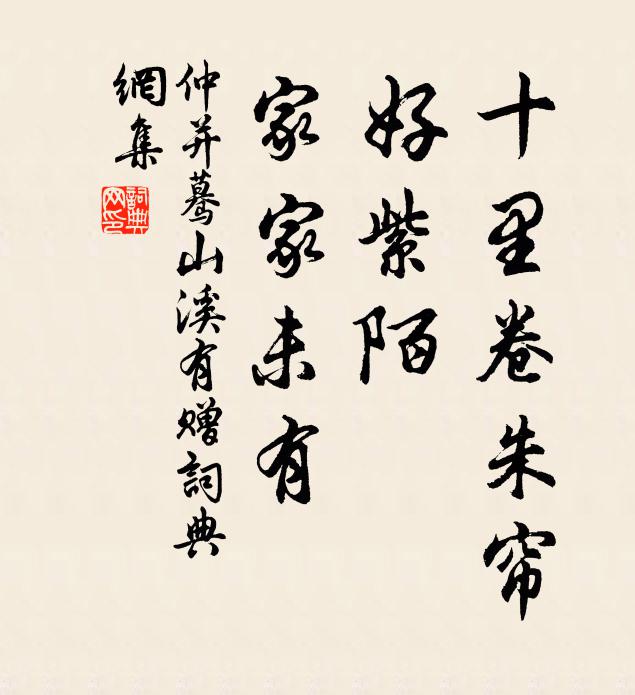 十里卷朱帘
好紫陌
家家未有
仲并蓦山溪有赠詞典
網集
詞典网印